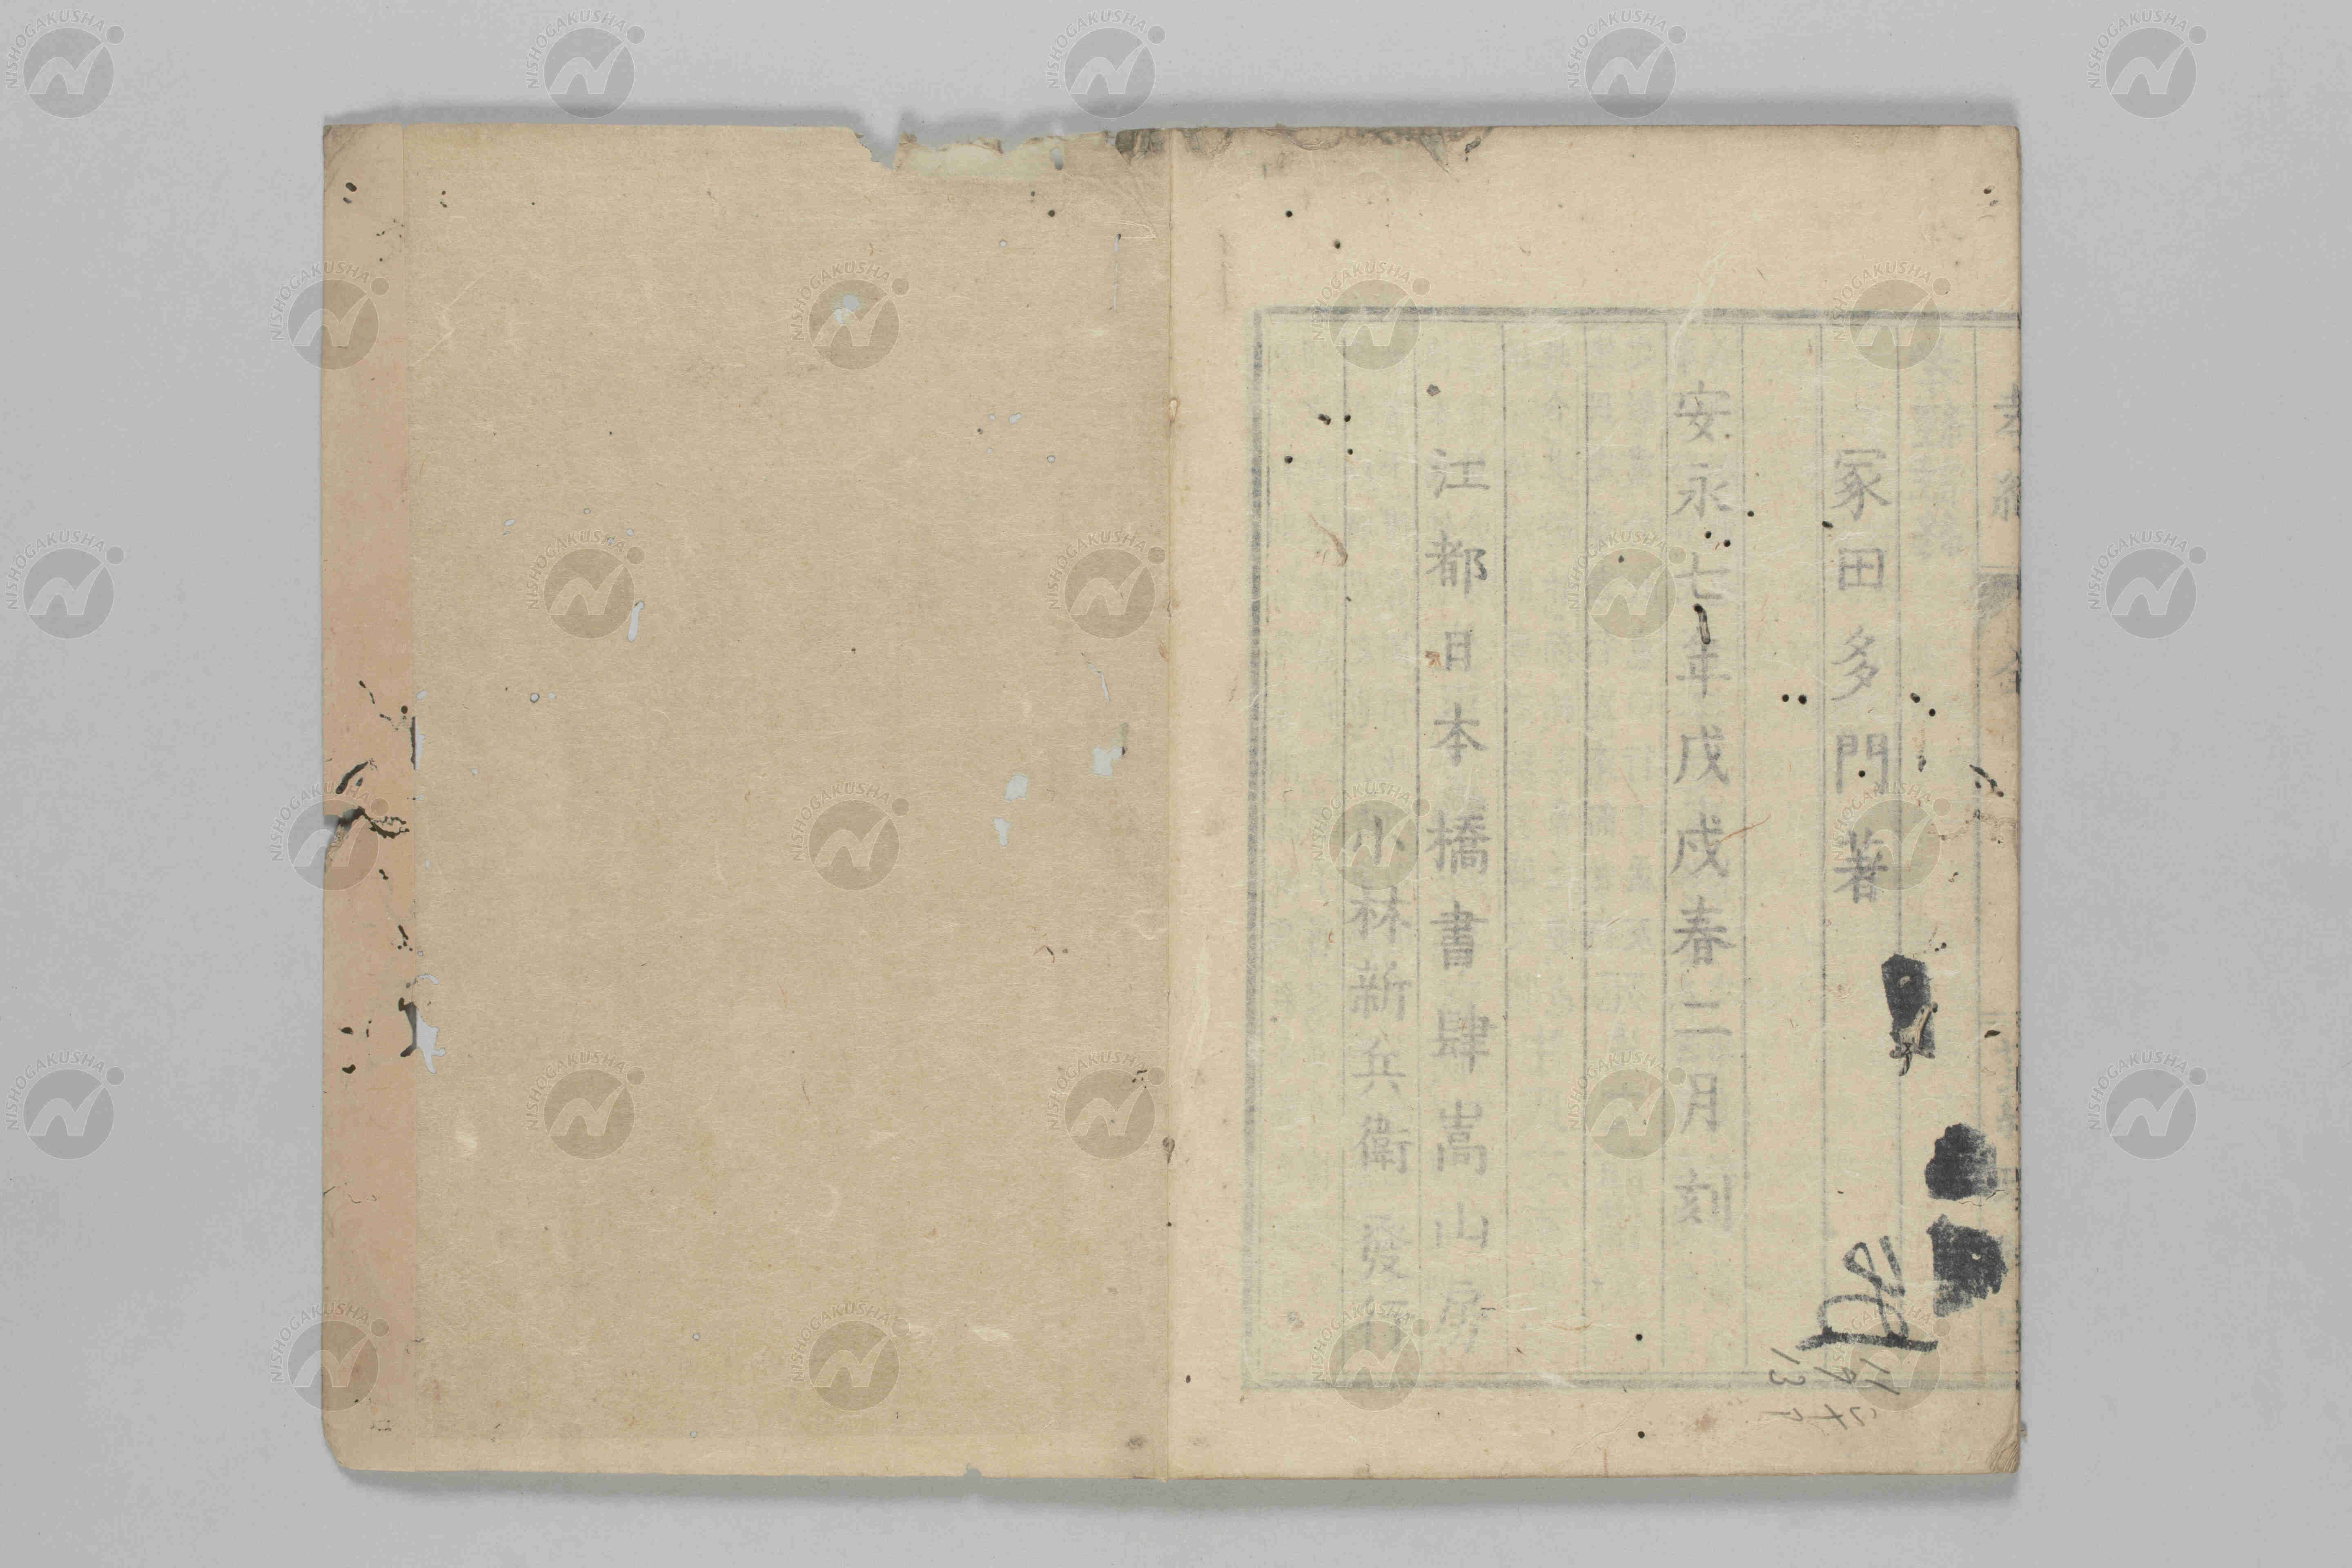 冢田多門著
安永七年戊戌春二月刻
江都日本橋書肆嵩山房
小林新兵衛發行
NISHOGAKUSHA